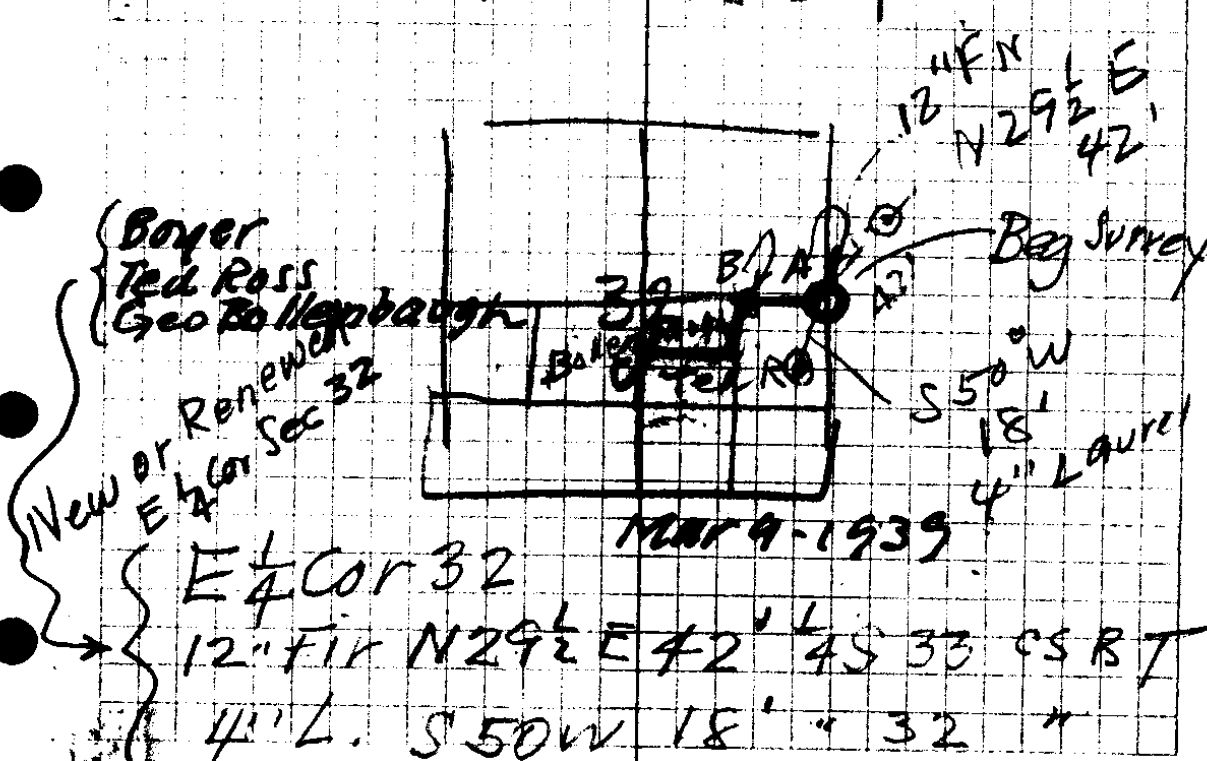 12" F N
N 29 1/2 E
42'
Boyer
Ted Ross
Geo Bollenbaugh
Beg Survey
B A
32
42'
Bollen
Ted R
S 50° W
18'
4" Laurel
New or Renewed
E 1/4 Cor Sec 32
Mar 9-1939
E 1/4 Cor 32
12" Fir N 29 1/2 E 42' 1/4 S 33 CS B T
4" L. S 50 W 18' " 32 "